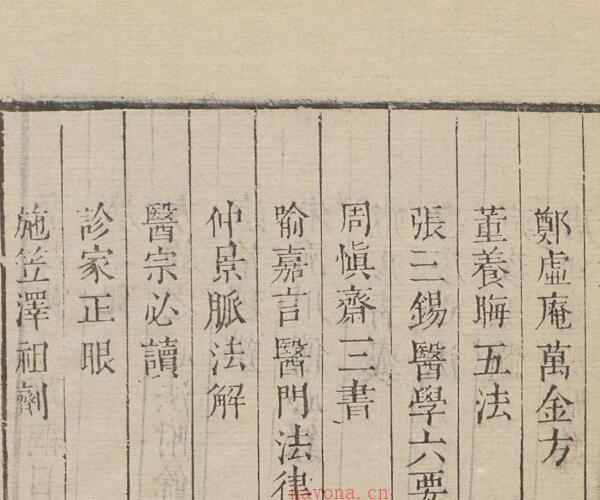 鄭虛庵萬金方
董養晦五法
張三錫醫學六要
周慎齋三書
喻嘉言醫門法律
仲景脈法解
醫宗必讀
診家正眼
施笠澤祖劑
navona.cn